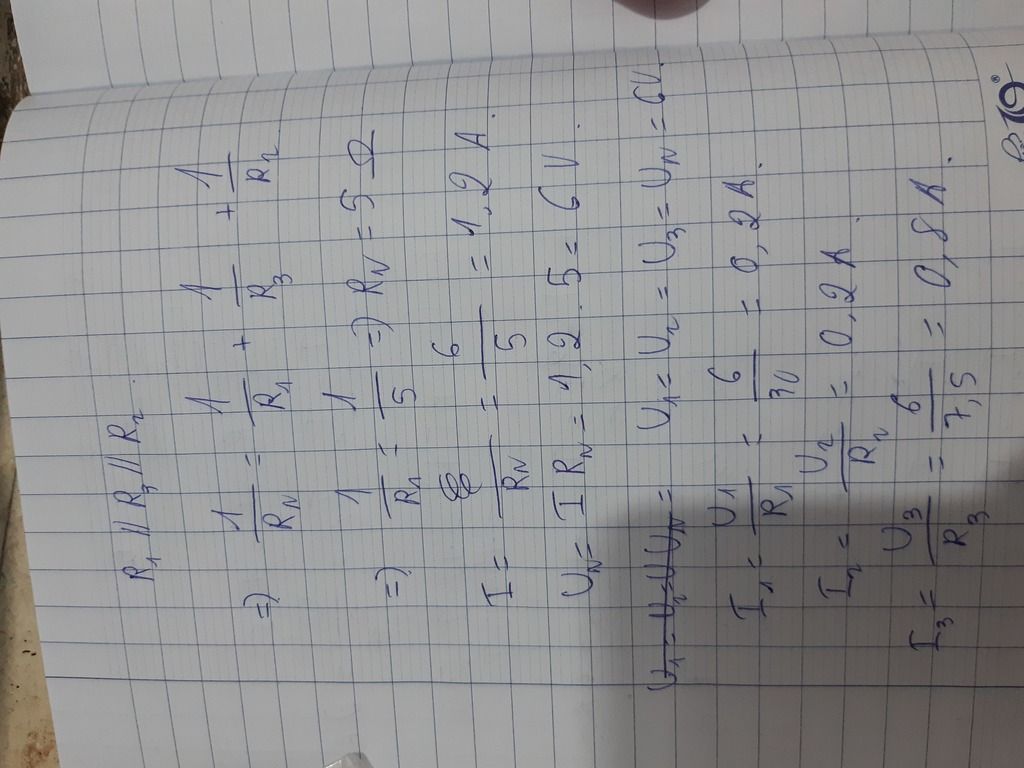 R₁ // R₃ // R₂
=) 1/R_N = 1/R₁ + 1/R₃ + 1/R₂
=) 1/R₁ = 1/5 =) R_N = 5 Ω
I = ℰ/R_N = 6/5 = 1,2 A.
U_N = I R_N = 1,2 . 5 = 6 V.
U₁ = U₂ = U U_N = U₁ = U₂ = U₃ = U_N = 6V.
I₁ = U₁/R₁ = 6/30 = 0,2 A.
I₂ = U₂/R₂ = 0,2 A.
I₃ = U₃/R₃ = 6/7,5 = 0,8 A.